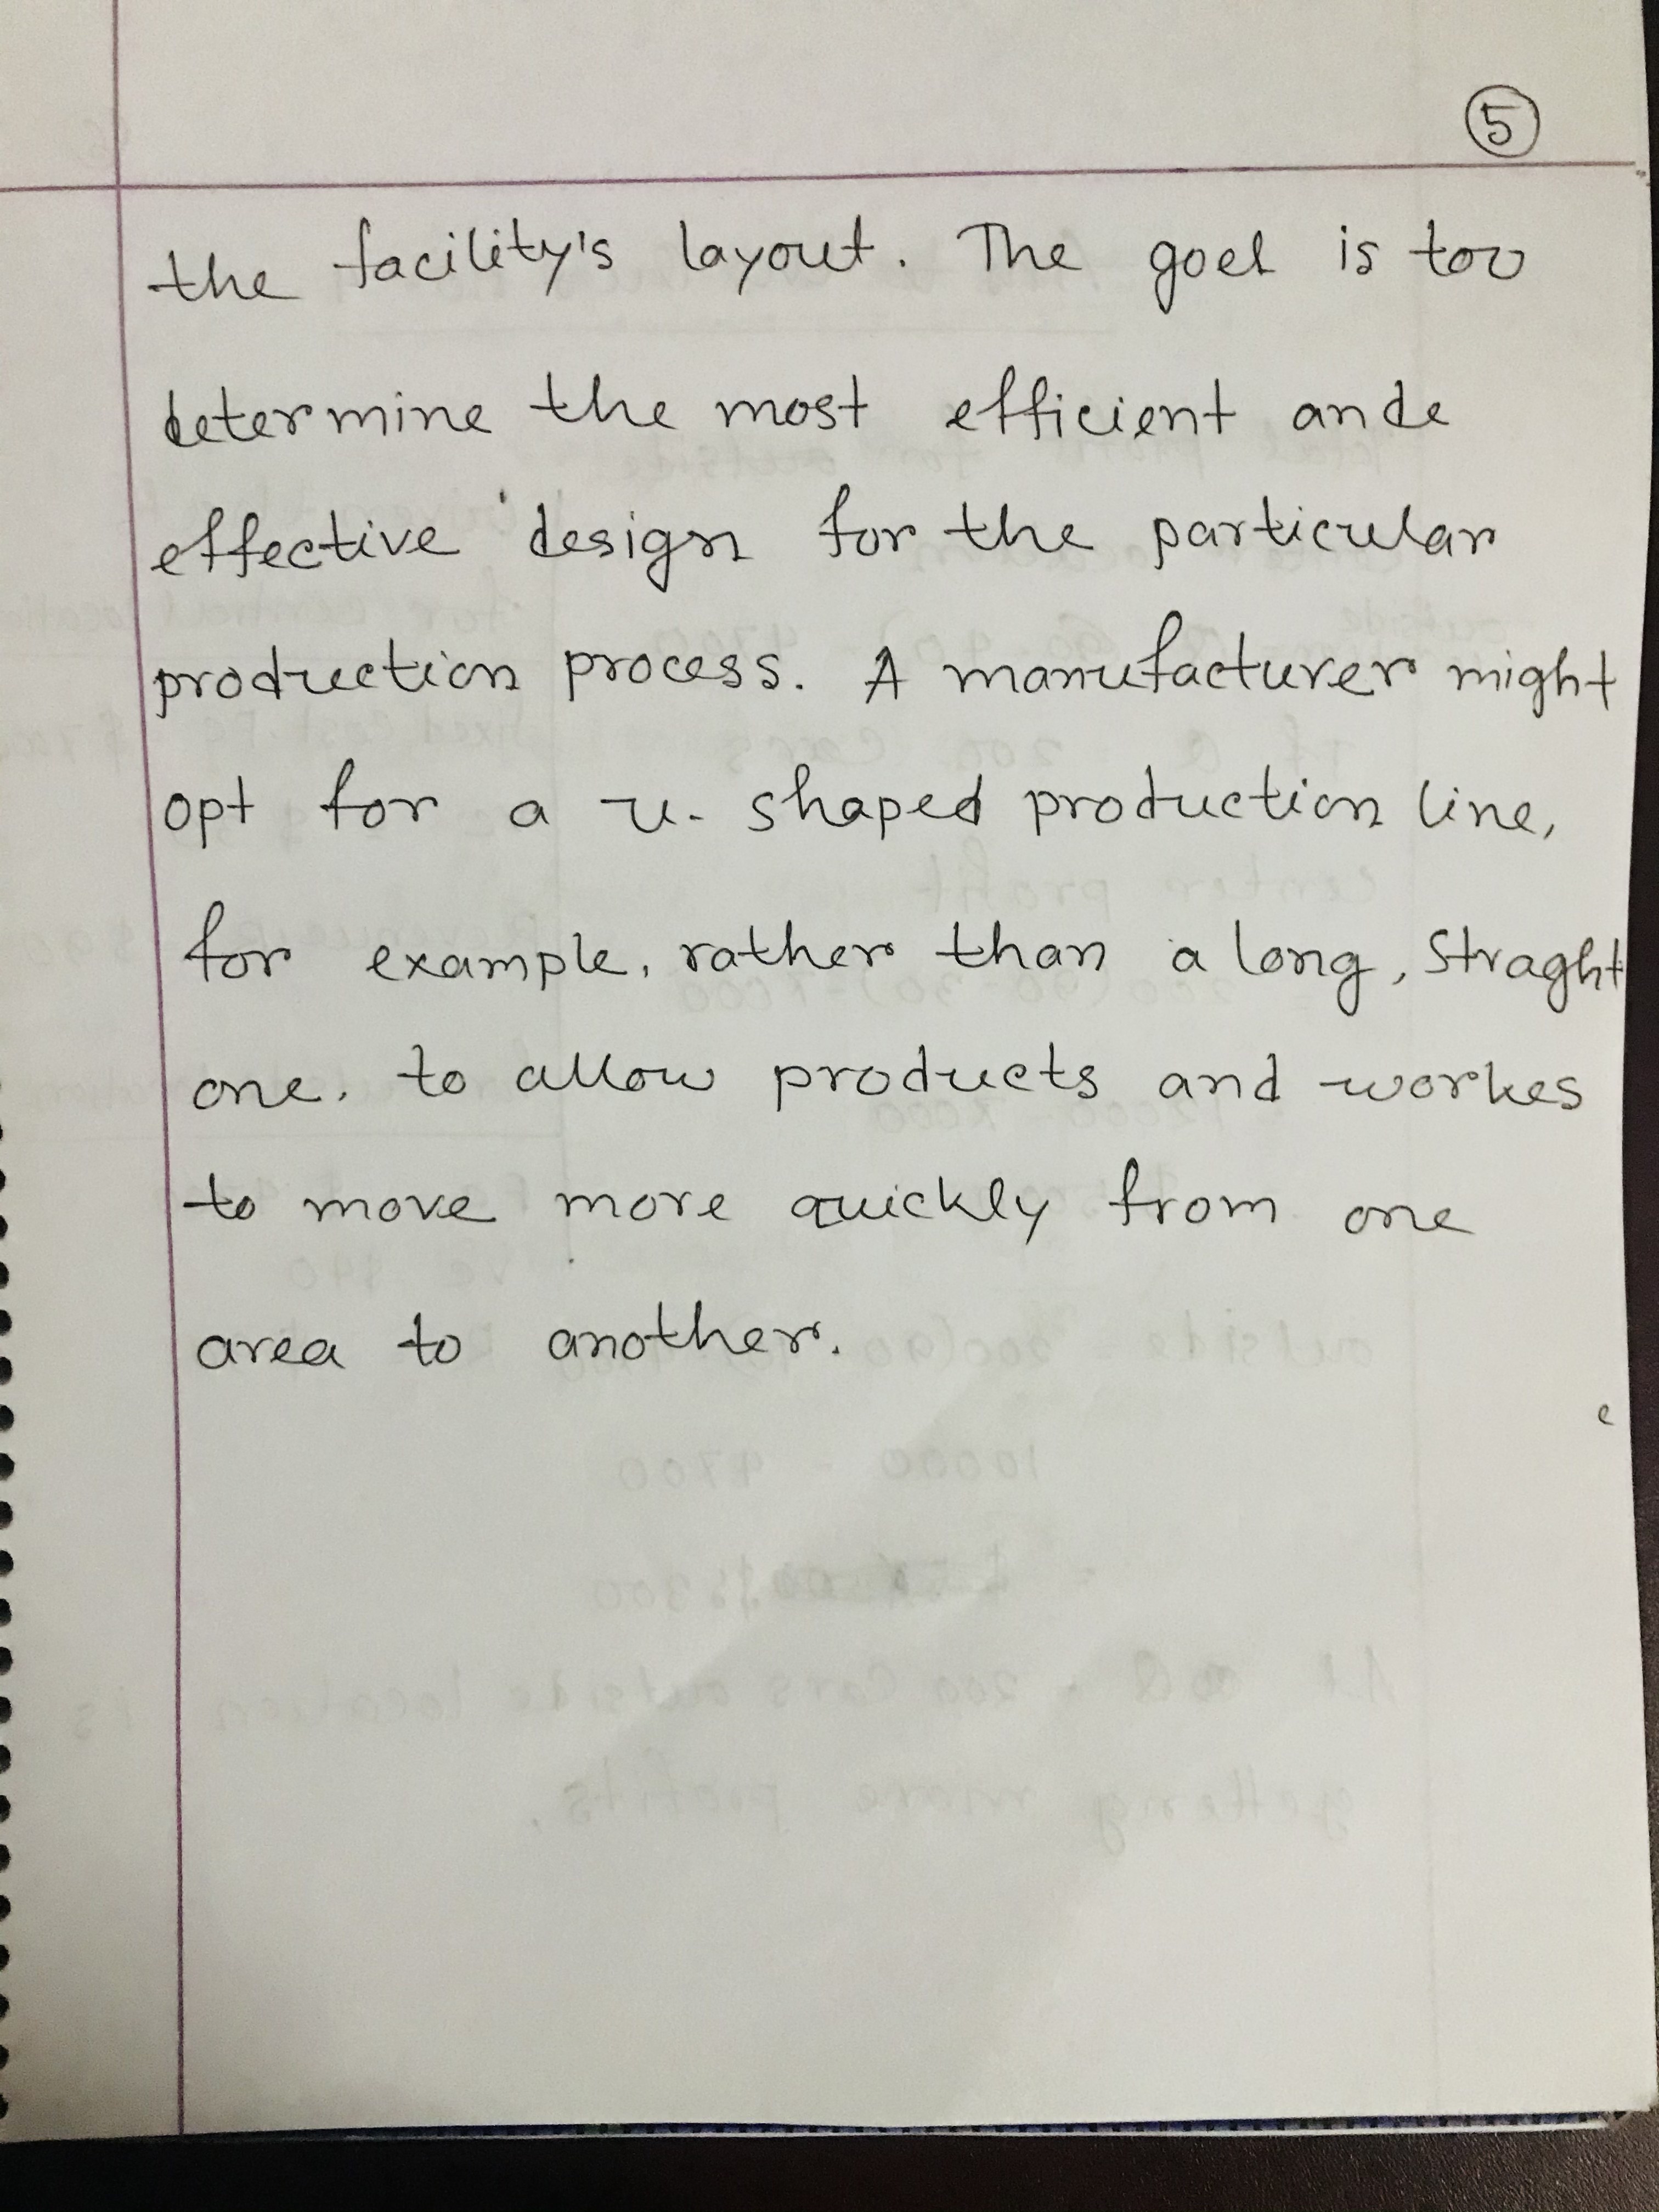 5
the facility's layout. The goel is too
determine the most efficient ande
effective design for the particular
production process. A manufacturer might
opt for a u- shaped production line,
for example, rather than a long, Straght
one, to allow products and workes
to move more quickly from one
area to another.